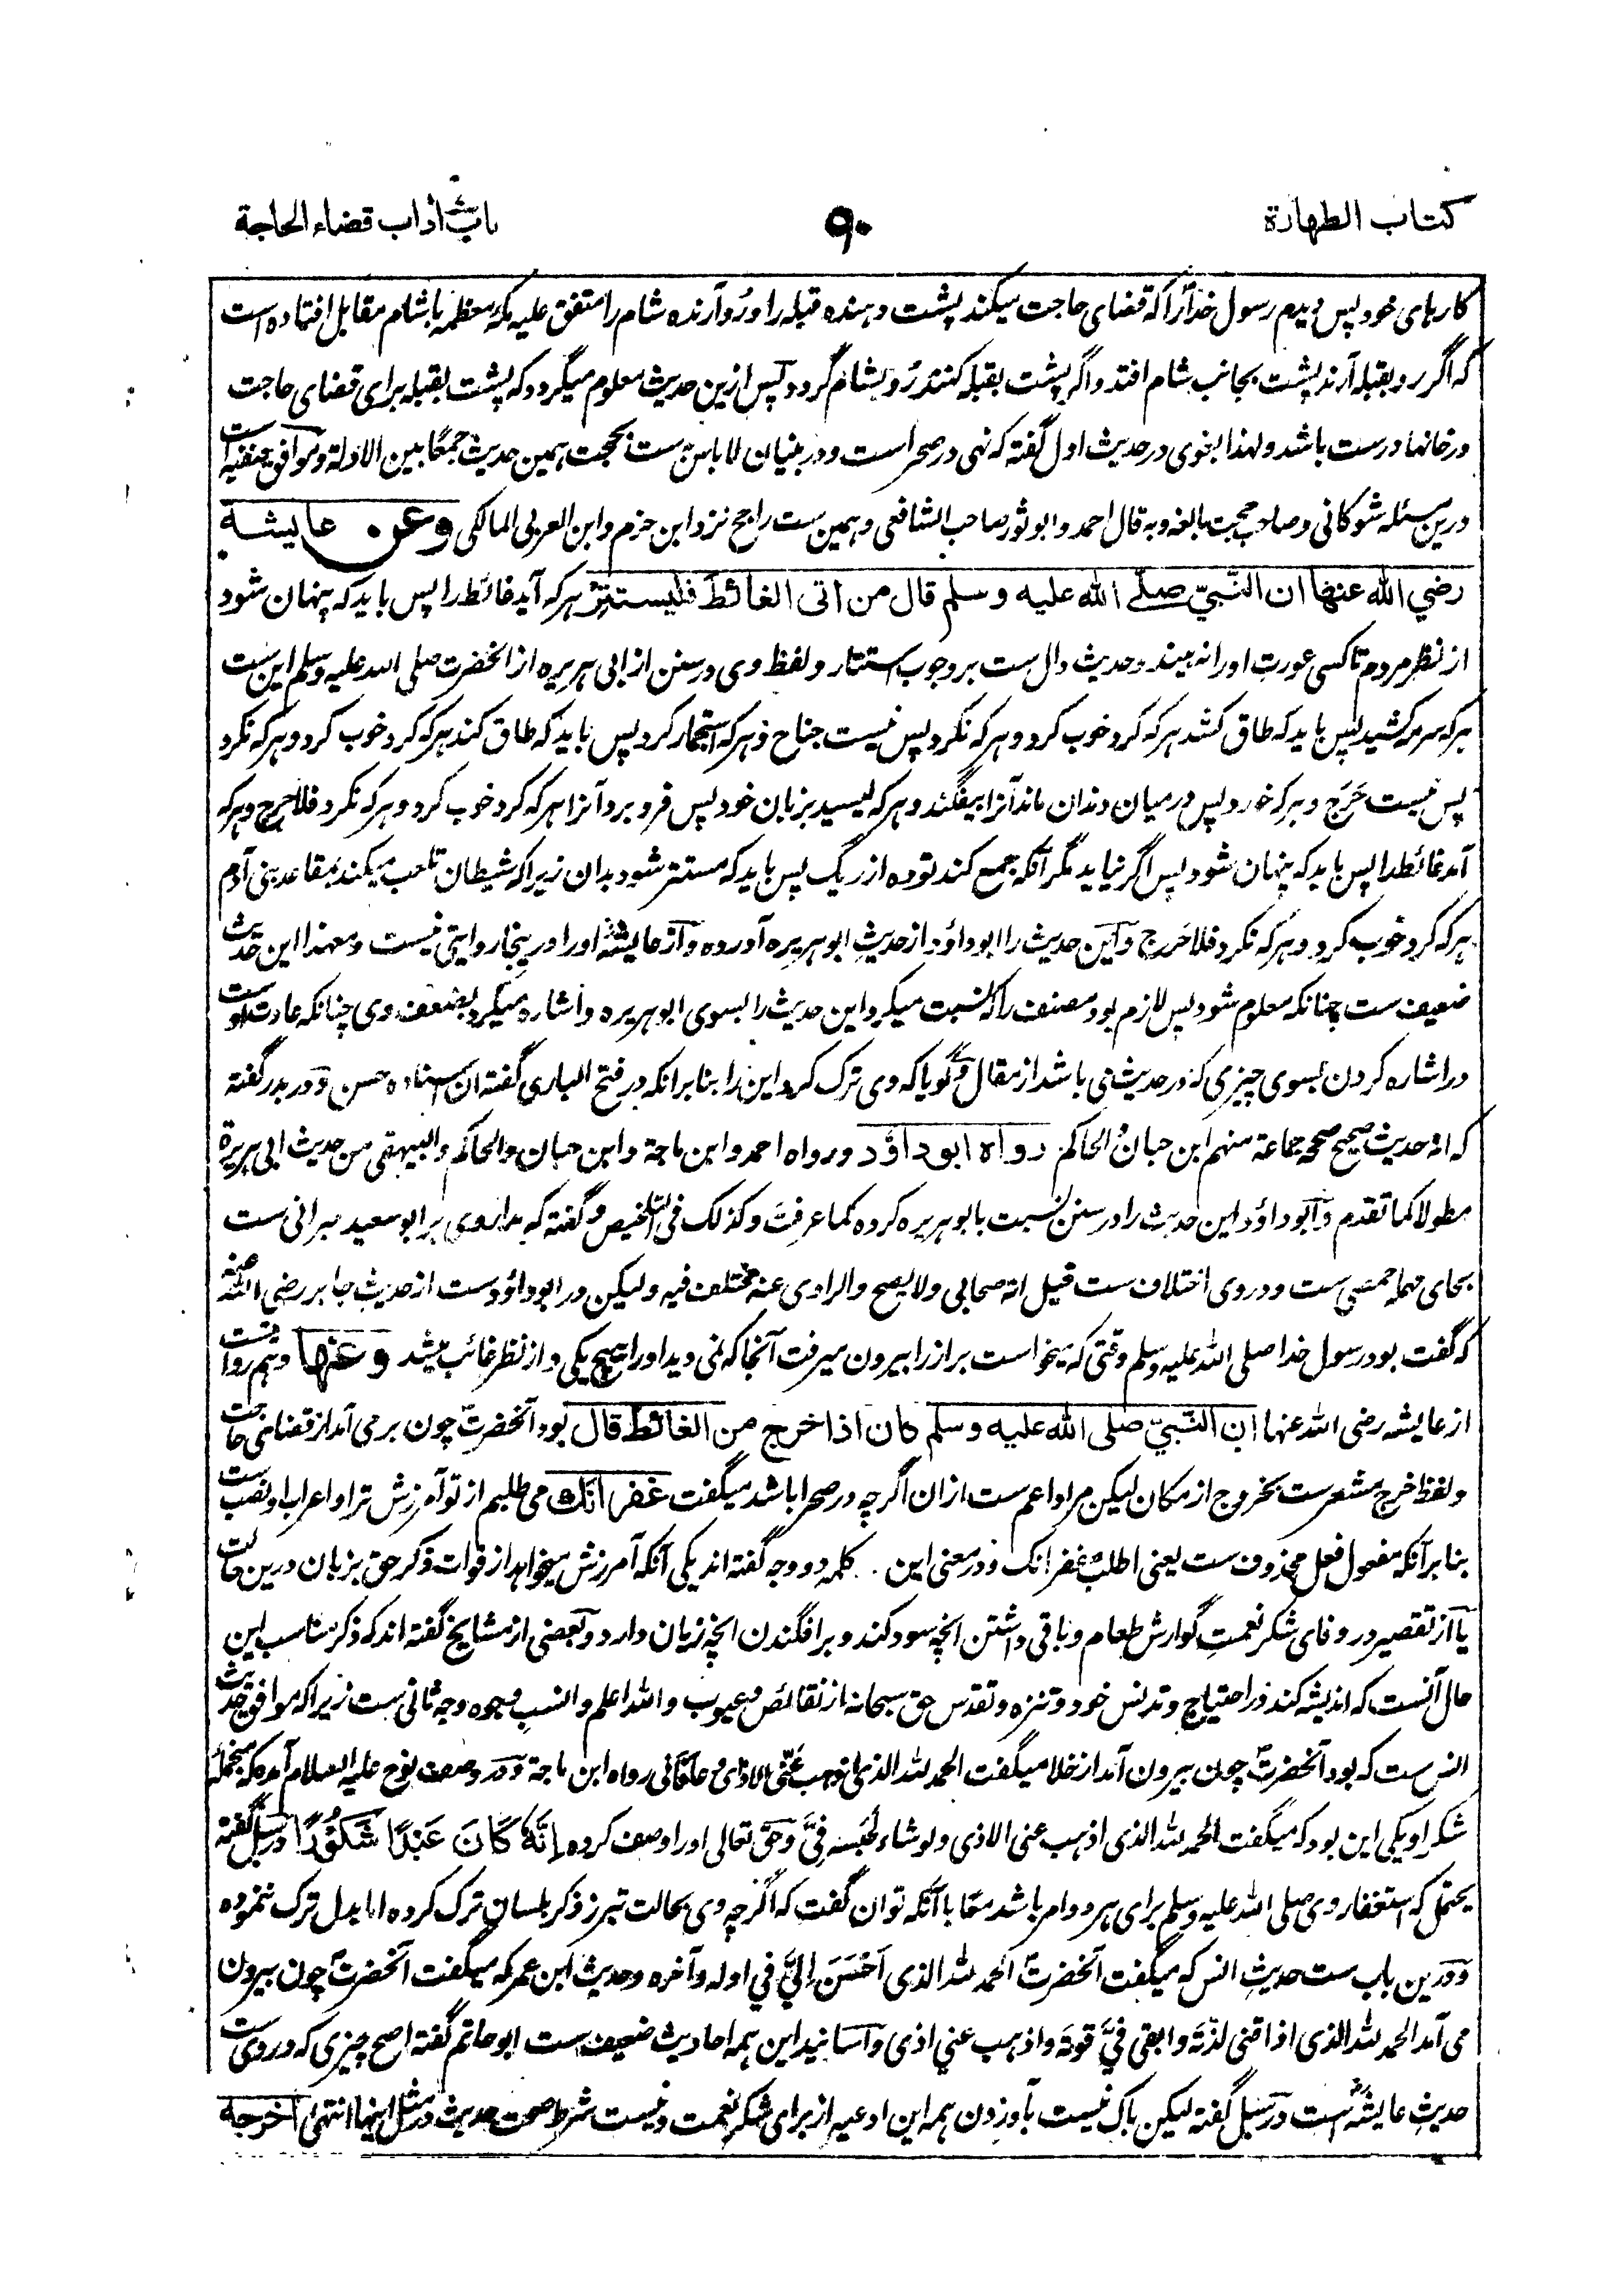 کتاب الطهارة
۹۰
باب آداب قضاء الحاجة
کارهای خود پس دیدم رسول خدا را که قضای حاجت میکند پشت دهنده قبله را و رو آرنده شام را متفق علیه مکه معظمه با شام مقابل افتاده است
که اگر رو بقبله آرند پشت بجانب شام افتد و اگر پشت بقبله کنند رو بشام گردد پس ازین حدیث معلوم میگردد که پشت بقبله برای قضای حاجت
در خانها درست باشد و لهذا بغوی در حدیث اول گفته که نهی در صحراست و در بنیان لا باس ست بحجت همین حدیث جمعا بین الادلة و موافق حنفیه است
درین مسئله شوکانی و صاحب حجت بالغه و به قال احمد و ابو ثور صاحب الشافعی و همین ست راجح نزد ابن حزم و ابن العربی المالکی وعن عایشة
رضي الله عنها ان النّبيّ صلّے الله عليه وسلم قال من اتى الغائط فليستتر هر که آید غائط را پس باید که پنهان شود
از نظر مردم تا کسی عورت او را نه بیند و حدیث دال ست بر وجوب استتار و لفظ وی در سنن از ابی هریره از انحضرت صلی الله علیه وسلم این ست
هر که سرمه کشید پس باید که طاق کشد هر که کرد خوب کرد و هر که نکرد پس نیست جناح و هر که استجمار کرد پس باید که طاق کند هر که کرد خوب کرد و هر که نکرد
پس نیست حَرَج و هر که خورد پس در میان دندان ماند آنرا بیفگند و هر که لیسید بزبان خود پس فرو برد آنرا هر که کرد خوب کرد و هر که نکرد فلا حرج و هر که
آمد غائط را پس باید که پنهان شود پس اگر نیابد مگر آنکه جمع کند توده از ریگ پس باید که مستتر شود بدان زیرا که شیطان تلعب میکند بمقاعد بنی آدم
هر که کرد خوب کرد و هر که نکرد فلا حَرج و این حدیث را ابو داؤد از حدیث ابو هریره آورده و از عایشه او را درینجا روایتی نیست و معهذا این حدیث
ضعیف ست چنانکه معلوم شود پس لازم بود مصنف را که نسبت میکرد این حدیث را بسوی ابو هریره و اشاره میکرد بضعف وی چنانکه عادت اوست
در اشاره کردن بسوی چیزی که در حدیث می باشد از مقال و گویا که وی ترک کرد این را بنا بر انکه در فتح الباری گفته ان اسناده حسن و در بدر گفته
که انه حدیث صحیح صححه جماعة منهم ابن حبان و الحاکم رواه ابو داؤد و رواه احمد و ابن ماجة و ابن حبان و الحاکم و البیهقی من حدیث ابی هریرة
مطولا کما تقدم و ابو داؤد این حدیث را در سنن نسبت بابو هریره کرده کما عرفتَ و کذلک فی التلخیص و گفته که مدار وی بر ابو سعید حبرانی ست
بحای مهمله حمصی ست و در وی اختلاف ست قیل انه صحابی و لا یصح و الراوی عنه مختلف فیه و لیکن در ابو داؤد ست از حدیث جابر رضی الله عنه
که گفت بود رسول خدا صلی الله علیه وسلم وقتی که میخواست براز را بیرون میرفت آنجا که نمی دید او را هیچ یکی و از نظر غائب میشد وعنها و هم روایت
از عایشه رضی الله عنها ان النّبيّ صلى الله عليه وسلم كان اذا خرج من الغائط قال بود آنحضرت چون بر می آمد از قضای حاجت
و لفظ خرج مشعر ست بخروج از مکان لیکن مراد اعم ست ازان اگر چه در صحرا باشد میگفت غفرانك می طلبم از تو آمرزش ترا و اعراب او نصب ست
بنا بر آنکه مفعول فعل محذوف ست یعنی اطلب غفرانک و در معنی این کلمه دو وجه گفته اند یکی آنکه آمرزش میخواهد از فوات ذکر حق بزبان درین حالت
یا از تقصیر در وفای شکر نعمتِ گوارش طعام و باقی داشتن انچه سود کند و بر افگندن انچه زیان دارد و بعضی از مشایخ گفته اند که ذکر مناسب این
حال آنست که اندیشه کند در احتیاج و تدنس خود و تنزه و تقدس حق سبحانه از نقائص و عیوب والله اعلم و انسب وجوه وجه ثانی ست زیرا که موافق حدیث
انس ست که بود آنحضرت چون بیرون آمد از خلا میگفت الحمد لله الذی اذهب عنّی الاذی و عافانی رواه ابن ماجة و در وصف نوح علیه السلام آمده که منجمله
شکر او یکی این بود که میگفت الحمد لله الذی اذهب عنی الاذی و لو شاء لحبسه فیَّ و حق تعالی او را وصف کرده إِنَّهُ كَانَ عَبْدًا شَكُوْرًا در سبل گفته
یحتمل که استغفار وی صلی الله علیه وسلم برای هر دو امر باشد معًا با آنکه توان گفت که اگر چه وی بحالت تبرز ذکر بلسان ترک کرده اما بدل ترک ننموده
و درین باب ست حدیث انس که میگفت آنحضرت الحمد لله الذی اَحْسَنَ اِلَیَّ في اوله و آخره و حدیث ابن عمر که میگفت آنحضرت چون بیرون
می آمد الحمد لله الذی اذاقنی لذّتَه و ابقی فيَّ قوتَه و اذهب عني اذی و اسانید این همه احادیث ضعیف ست ابو حاتم گفته اصح چیزی که در وی ست
حدیث عایشه است در سبل گفته لیکن باک نیست بآوردن همه این ادعیه از برای شکر نعمت و نیست شرط صحت حدیث در مثل اینها انتهی اخرجه